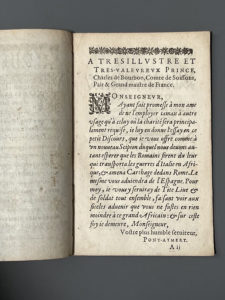 A TRESILLVSTRE ET
TRES-VALEVREVX PRINCE,
Charles de Bourbon, Comte de Soissons,
Pair & Grand maistre de France.
MONSEIGNEVR,
Ayant fait promesse à mon ame
de ne l'employer iamais à autre
vsage qu'à celuy où la charité sera principa-
lement requise, ie luy en donne l'essay en ce
petit Discours, que ie vous offre comme à
vn nouueau Scipion duquel nous deuons au-
tant esperer que les Romains firent du leur
qui transporta les guerres d'Italie en Afri-
que, & amena Carthage dedans Rome. Le
mesme vous aduiendra de l'Espagne. Pour
moy, ie vous y seruiray de Tite Liue &
de soldat tout ensemble, & feray voir aux
siecles aduenir que vous ne fustes en rien
moindre à ce grand Africain: & sur ceste
foy ie demeure, Monseigneur,
Vostre plus humble seruiteur,
PONT-AYMERY.
A ij